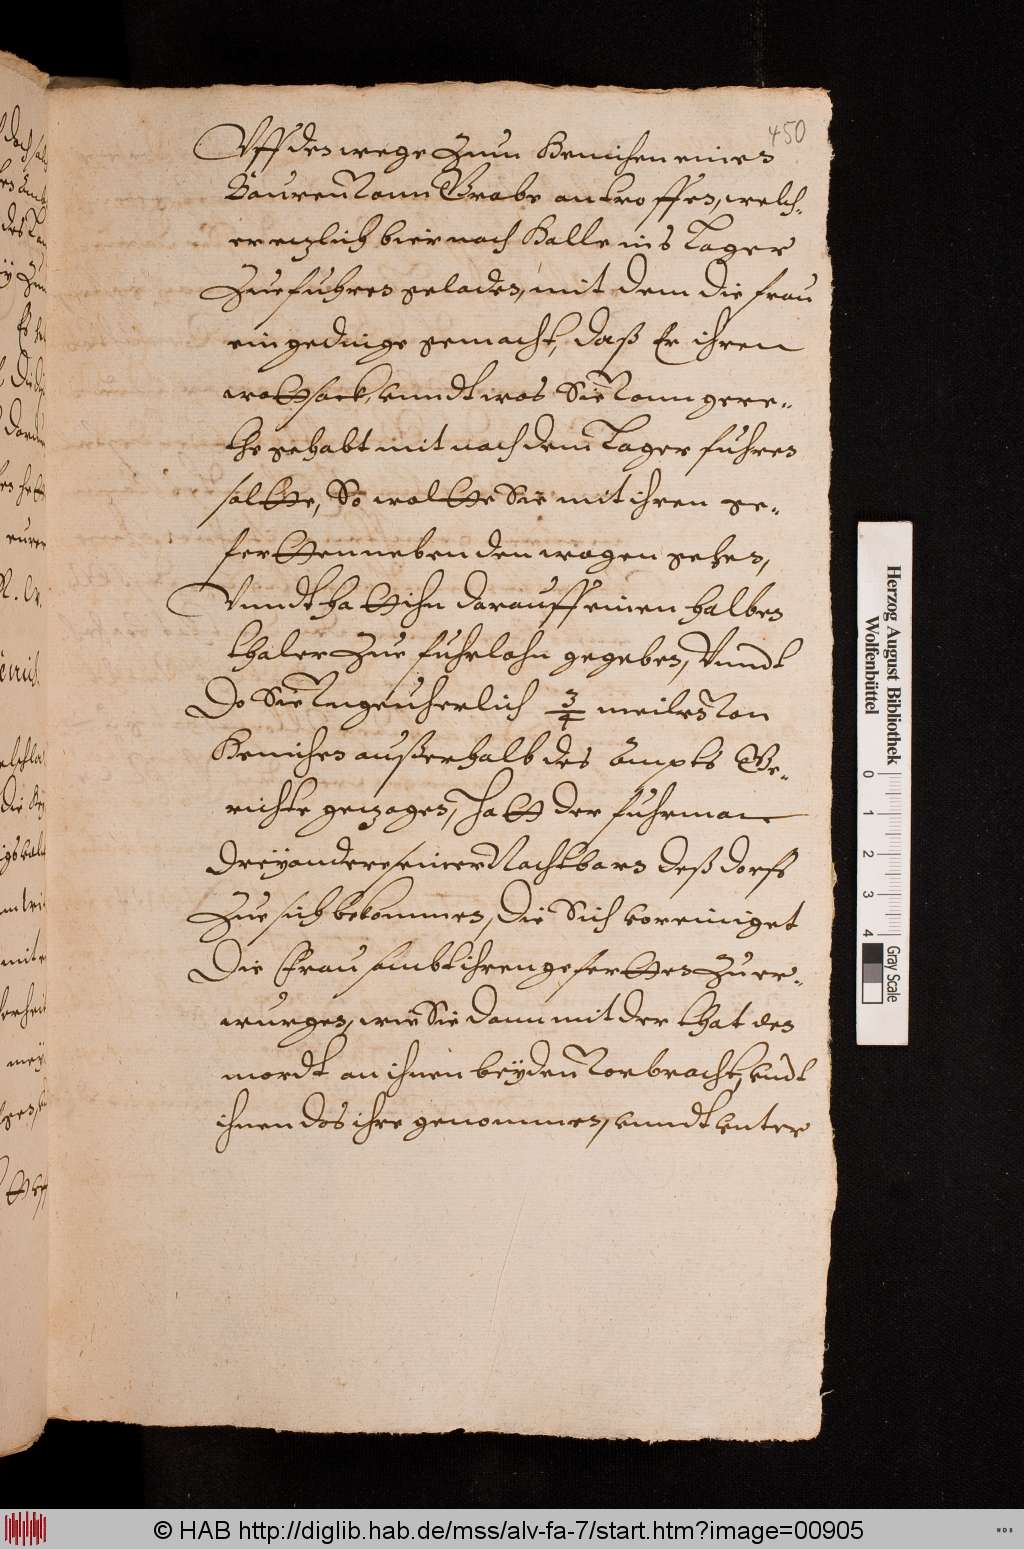 450
Vff den wege Zum Henichen eines
Bauren Vonn Grabe antroffen, welch-
er etzlich bier nach Halle ins Lager
Zue führen geladen, mit dem die frau
ein gedinge gemacht, daß Er ihren
wattsack, vnndt was Sie Vonn gere-
the gehabt mit nach dem Lager führen
soltte, So woltte Sie mit ihren ge-
fertten neben den wagen gehen,
Vnndt hatt ihn darauff einen halben
thaler Zue fuhrlohn gegeben, Vnndt
Do Sie Vngeuherlich 3/4 meilen Von
Henichen außerhalb des Ampts Ge-
richte gezogen, hatt der fuhrman
Drey andere seiner Nachtbarn deß dorfs
Zue sich bekommen, die Sich voreiniget
Die Frau sambt ihren gefertten Zu er-
wurgen, wie Sie dann mit der that den
mordt an ihnen beyden Vorbracht, vndt
ihnen das ihre genommen, vnndt vnter
Herzog August Bibliothek
Wolfenbüttel
0 1 2 3 4
Gray Scale
© HAB http://diglib.hab.de/mss/alv-fa-7/start.htm?image=00905